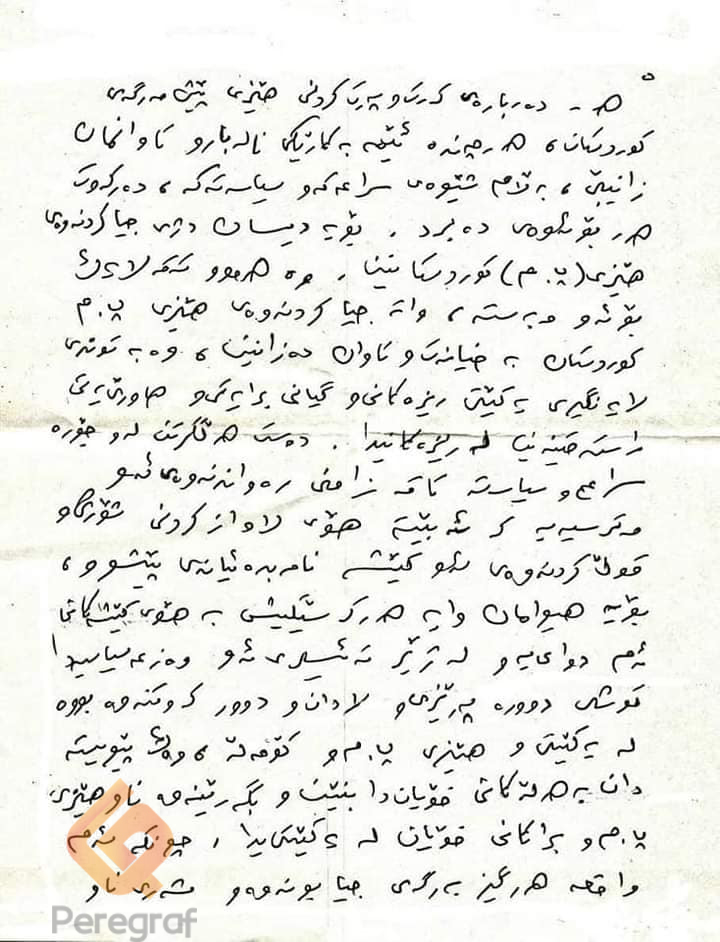 ٥
هـ - دەربارەی کەرت و پەرت کردنی هێزی پێشمەرگەی
کوردستان، هەرچەندە ئێمە بە کارێکی نالەبارو تاوانمان
زانیبێ، بەڵام شێوەی سراعەکەو سیاسەتەکە، دەرکەوت
هەر بۆ ئەوەی دەبرد. بۆیە دیسان دژی جیاکردنەوەی
هێزی (پ.م) کوردستانین، وە هەموو تەقەلایەک
بۆ ئەو مەبەستە، واتە جیاکردنەوەی هێزی پ.م
کوردستان بە خیانەت و تاوان دەزانین، وە بە توندی
لایەنگیری یەکێتی ریزەکانی و گیانی برایەتی و هاوڕێیەتی
راستەقینەین لە ریزەکانیدا. دەست هەڵگرتن لەو جۆرە
سراع و سیاسەتە تاقە زامنی رەواندنەوەی ئەو
مەترسیەیە کە ئەبێتە هۆی لاواز کردنی شۆڕش و
قوڵکردنەوەی ئەو کێشە نامەبدەئیانەی پێشوو،
بۆیە هیوامان وایە هەرکەسێکیش بە هۆی کێشەکانی
ئەم دواییەو لە ژێر تەئسیری ئەو وەزعە سیاسیدا
تووشی دوورە پەرێزی و لادان و دوور کەوتنەوە بووە
لە یەکێتی و هێزی پ.م و کۆمەڵە، وەک پێویستە
دان بە هەڵەکانی خۆیان دا بنێن و بگەڕێنەوە ناو هێزی
پ.م و براکانی خۆیان لە یەکێتیدا، چونکە ئەم
واقعە هەرگیز بەرگەی جیابونەوەو شەڕی ناو
Peregraf